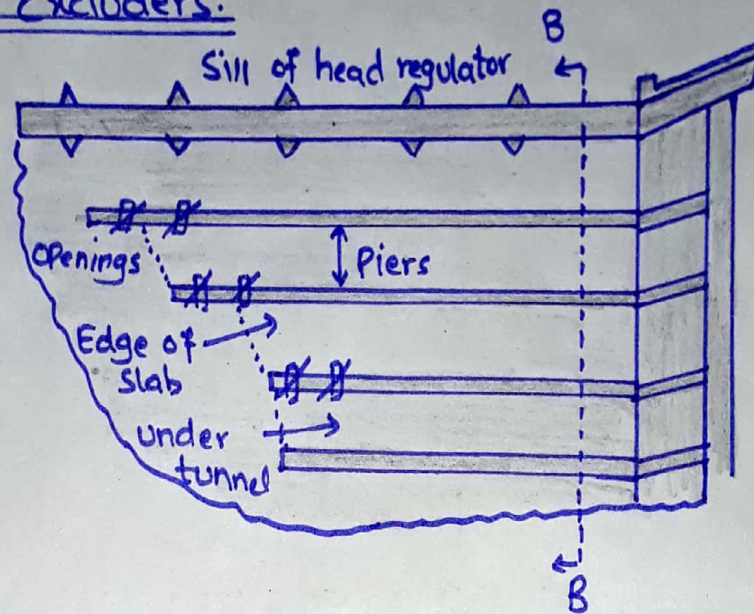 Excluders.
B
Sill of head regulator
Openings
Piers
Edge of
slab
under
tunnel
B